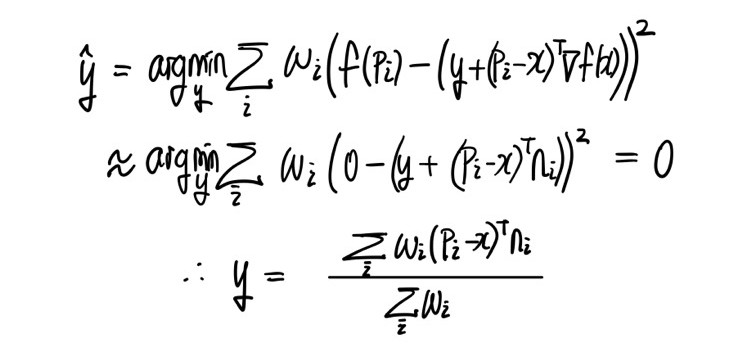 ŷ = argmin_y Σ_i ω_i(f(p_i) − (y+(p_i−x)^T ∇f(x)))^2
≈ argmin_y Σ_i ω_i(0 − (y + (p_i−x)^T n_i))^2 = 0
∴ y = \frac{Σ_i ω_i(p_i−x)^T n_i}{Σ_i ω_i}